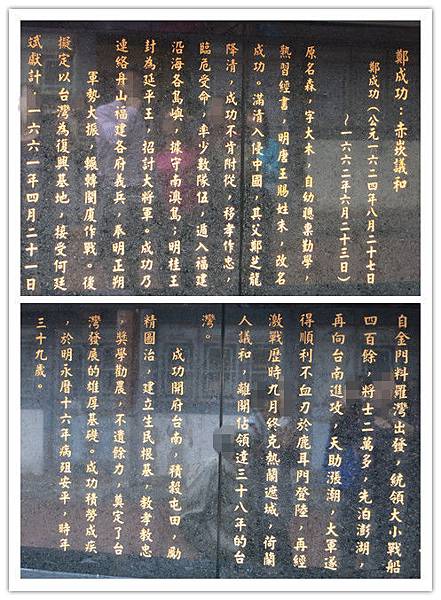 鄭成功：赤崁議和
鄭成功（公元一六二四年八月二十七日
～一六六二年六月二十三日）
原名森，字大木，自幼聰穎勤學，
熟習經書，明唐王賜姓朱，改名
成功。滿清入侵中國，其父鄭芝龍
降清，成功不肯附從，移孝作忠，
臨危受命，率少數隊伍，遁入福建
沿海各島嶼，據守南澳島；明桂王
封為延平王，招討大將軍。成功乃
連絡舟山福建各府義兵，奉明正朔
軍勢大振，輾轉閩廈作戰。後
擬定以台灣為復興基地，接受何廷
斌獻計，一六六一年四月二十一日
自金門料羅灣出發，統領大小戰船
四百餘，將士二萬多，先泊澎湖，
再向台南進攻，天助漲潮，大軍遂
得順利不血刃於鹿耳門登陸，再經
激戰歷時九月終克熱蘭遮城，荷蘭
人議和，離開佔領達三十八年的台
灣。
成功開府台南，積穀屯田，勵
精圖治，建立生民根基，教孝教忠
，獎學勸農，不遺餘力，奠定了台
灣發展的雄厚基礎。成功積勞成疾
，於明永曆十六年病殂安平，時年
三十九歲。